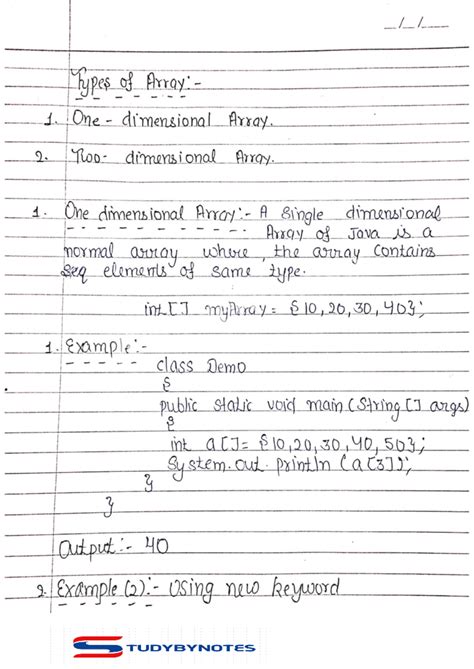 __/__/____
Types of Array:-
1. One-dimensional Array.
2. Two-dimensional Array.
1. One dimensional Array:- A single dimensional
Array of Java is a
normal array where, the array contains
seq elements of same type.
int[] myArray = {10, 20, 30, 40};
1. Example:-
class Demo
{
public static void main (String [] args)
{
int a[]= {10, 20, 30, 40, 50};
System.out.println (a[3]);
}
}
Output:- 40
2. Example (2):- Using new keyword
STUDYBYNOTES